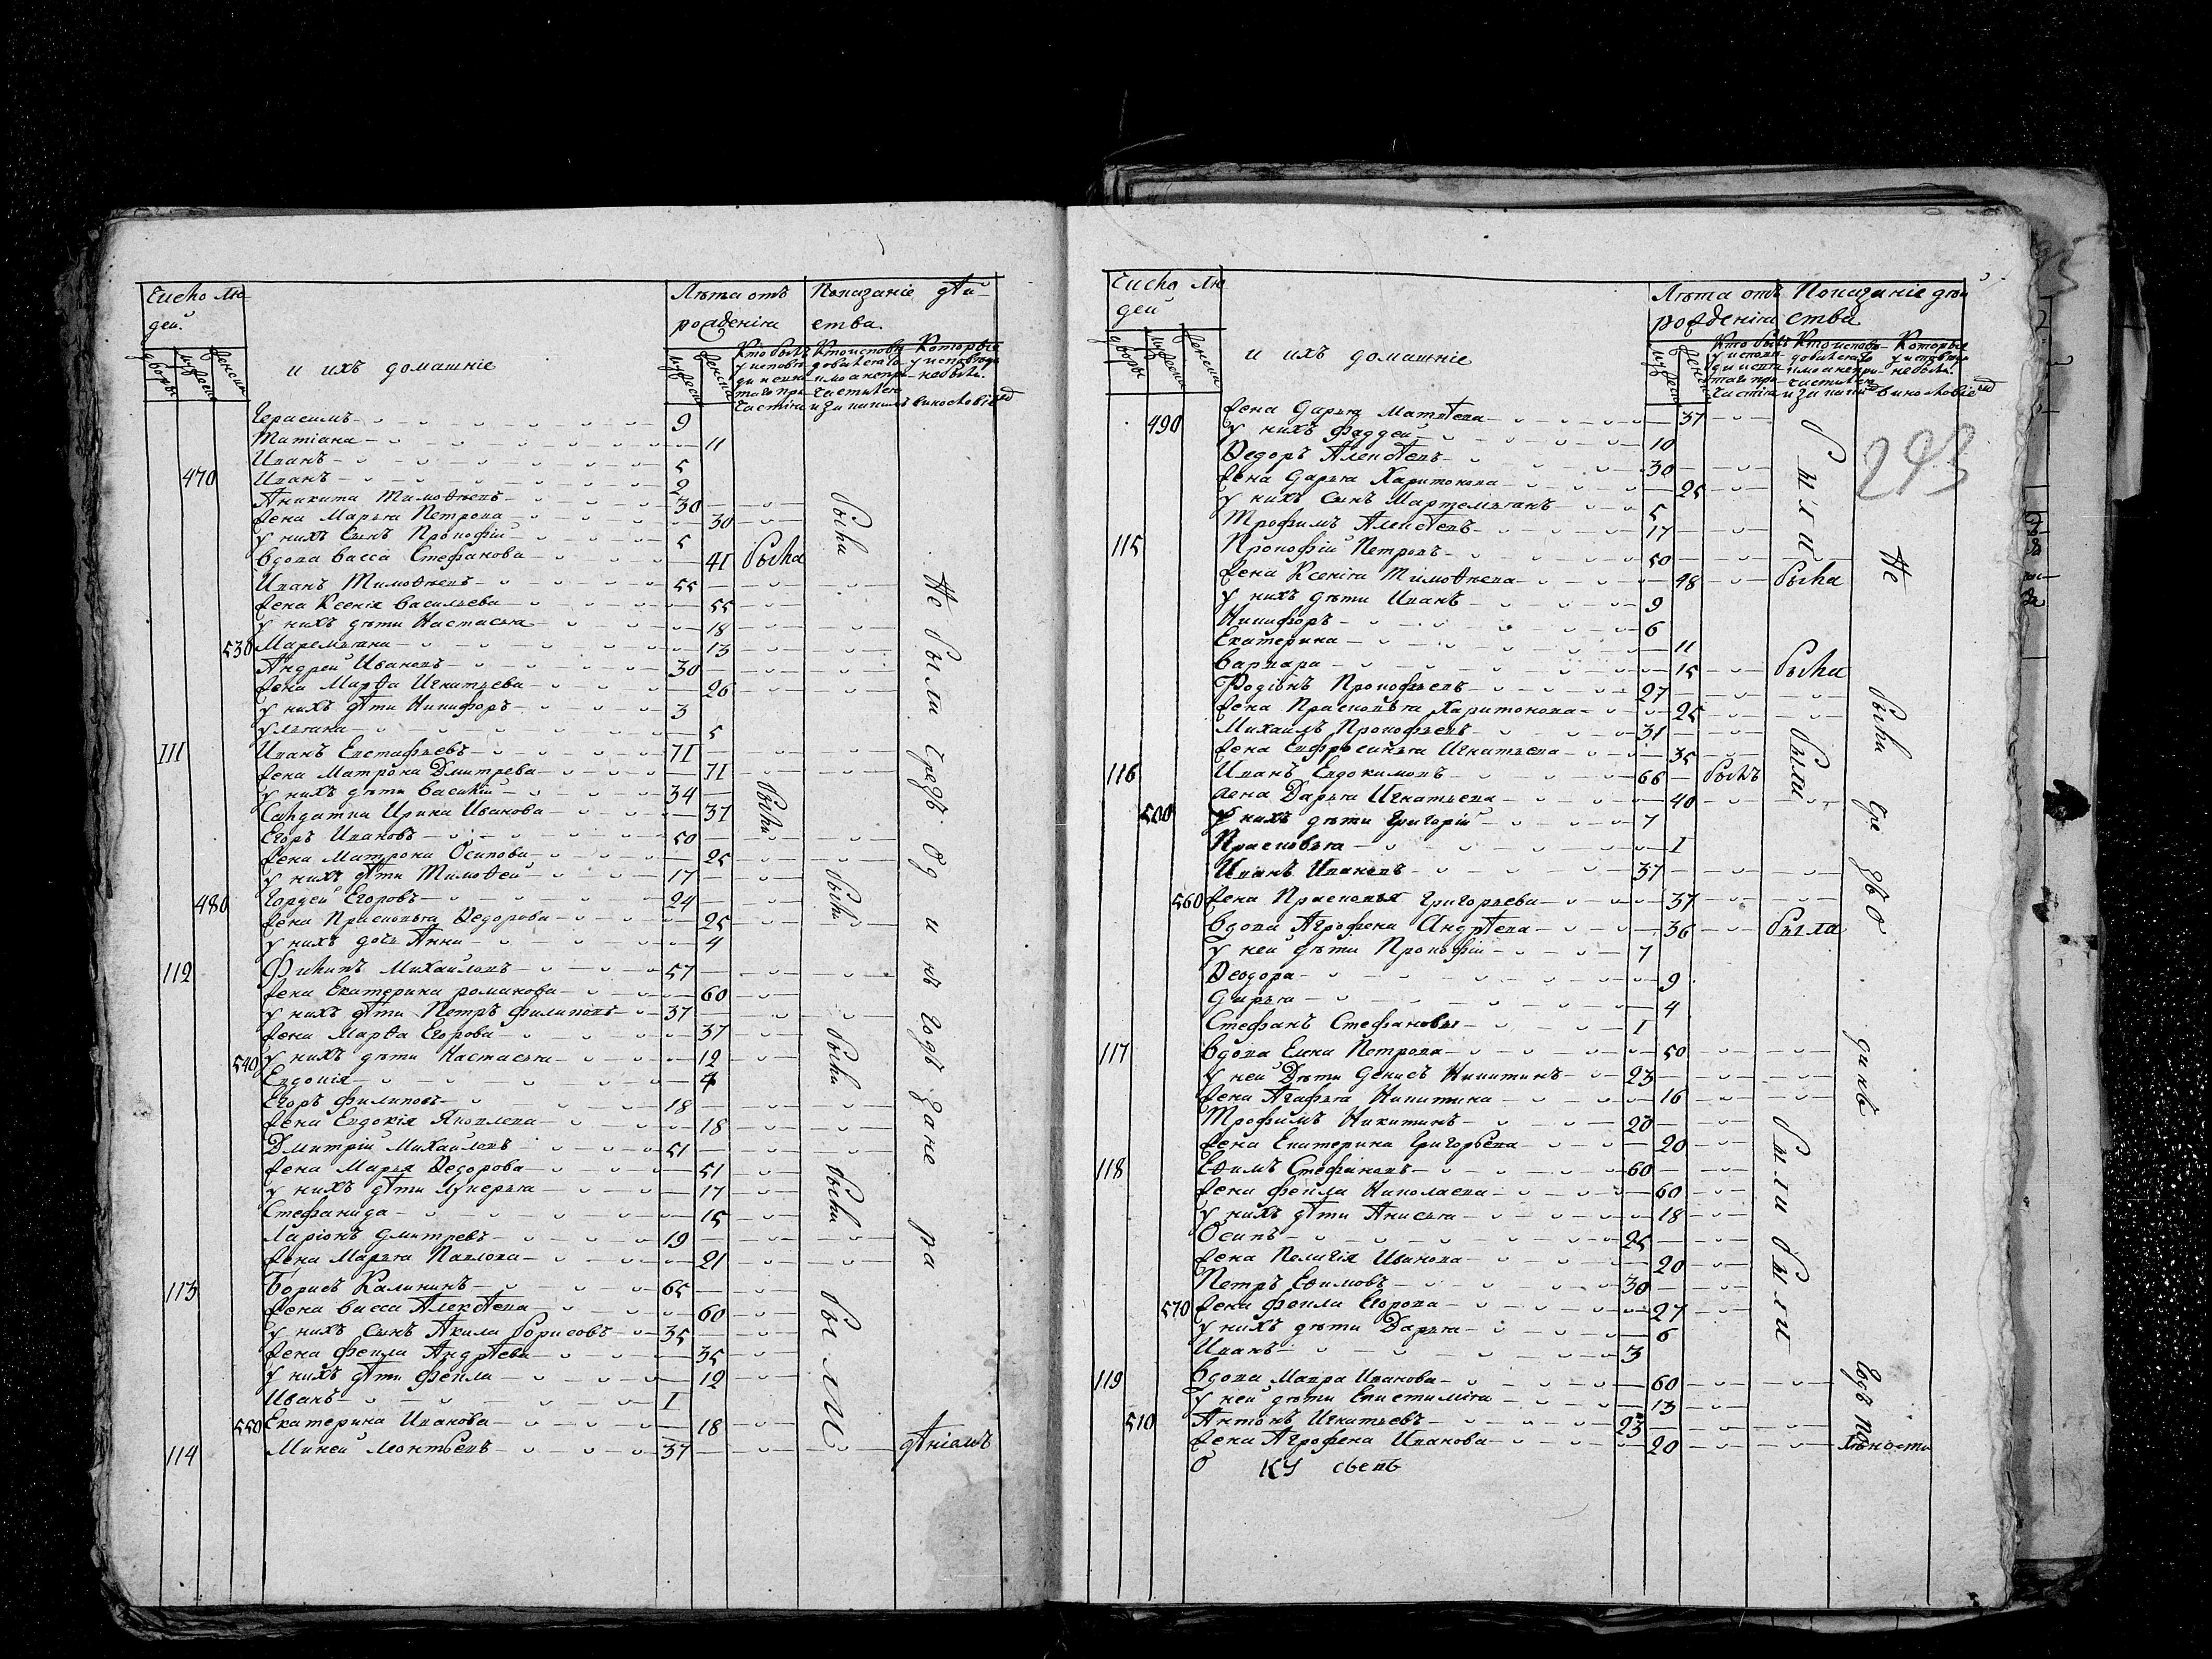 Число лю
дей.
дворы
мужеска
женска
и ихъ домашніе
Лѣта отъ
рожденія
мужеска
женска
Показаніе дѣй
ства.
Герасимъ 9
Татіана 11
Иванъ 5
470 Иванъ 2
Аникита Тимоѳѣевъ 30
жена Марья Петрова 30
у нихъ сынъ Прокофій 5
вдова васса Стефанова 41 была
Иванъ Тимоѳѣевъ 55
жена Ксенія васильева 55
у нихъ дѣти Настасья 18
530 Маремьяна 13
Андрей Ивановъ 30
жена Марѳа Игнатьева 26
у нихъ дѣти Никифоръ 3
ульяна 5
111 Иванъ Евстифѣевъ 71
жена Матрона Дмитрева 71
у нихъ дѣти василій 34
Салдатка Ирина Иванова 37
Егоръ Ивановъ 50
жена Матрона Осипова 25
у нихъ дѣти Тимоѳей 17
480 Гордей Егоровъ 24
жена Прасковья Ѳедорова 25
у нихъ дочь Анна 4
112 Филипъ Михайловъ 57
жена Екатерина романова 60
у нихъ дѣти Петръ филиповъ 37
жена Марѳа Егорова 37
540 у нихъ дѣти Настасья 12
Евдокія 4
Егоръ филиповъ 18
жена Евдокія Яковлева 18
Дмитрій Михайловъ 51
жена Марья Ѳедорова 51
у нихъ дѣти лукерья 17
Стефанида 15
Ларіонъ Дмитревъ 19
жена Марья Павлова 21
113 Борисъ Калининъ 65
жена васса Алексѣева 60
у нихъ сынъ Акила Борисовъ 35
жена фекла Андрѣева 35
у нихъ дѣти фекла 12
Иванъ 1
550 Екатерина Иванова 18
114 Микей леонтьевъ 37
были
были
были
были
были
были
Не были чредъ Од и нъ годъ зане ра
дѣніемъ
Число лю
дей
дворы
мужеска
женска
и ихъ домашніе
Лѣта отъ
рожденія
мужеска
женска
Показаніе дѣй
ства
293
жена Дарья Матвѣева 37
490 у нихъ фаддей 10
Ѳедоръ Алексѣевъ 30
жена Дарья Харитонова 25
у нихъ сынъ Мартемьянъ 5
Трофимъ Алексѣевъ 17
115 Прокофій Петровъ 50
жена Ксенія Тимоѳѣева 48 была
у нихъ дѣти Иванъ 9
Никифоръ 6
Екатерина 11
варвара 15 была
Родіонъ Прокофьевъ 27
жена Прасковья Харитонова 25
Михаилъ Прокофьевъ 31
жена Евфросинья Игнатьева 35
116 Иванъ Евдокимовъ 66 былъ
жена Дарья Игнатьева 40
500 у нихъ дѣти Григорій 7
Прасковья 1
Иванъ Ивановъ 37
560 жена Прасковья Григорьева 37
вдова Агрофена Андрѣева 36 была
у ней дѣти Прокофій 7
Ѳеодора 9
Дарья 4
Стефанъ Стефановъ 1
117 вдова Елена Петрова 50
у ней Дѣти Денисъ Никитинъ 23
жена Агафья Никитина 16
Трофимъ Никитинъ 20
жена Екатерина Григорьева 20
118 Еѳимъ Стефановъ 60
жена фекла Николаева 60
у нихъ дѣти Анисья 18
Осипъ 25
жена Пелагія Иванова 20
Петръ Еѳимовъ 30
570 жена фекла Егорова 27
у нихъ дѣти Дарья 6
Иванъ 3
119 вдова Мавра Иванова 60
у ней дѣти Епистимія 13
510 Антонъ Игнатьевъ 23
жена Агрофена Иванова 20
были
были
были были
Не были чре дъ О динъ годъ по
лѣности